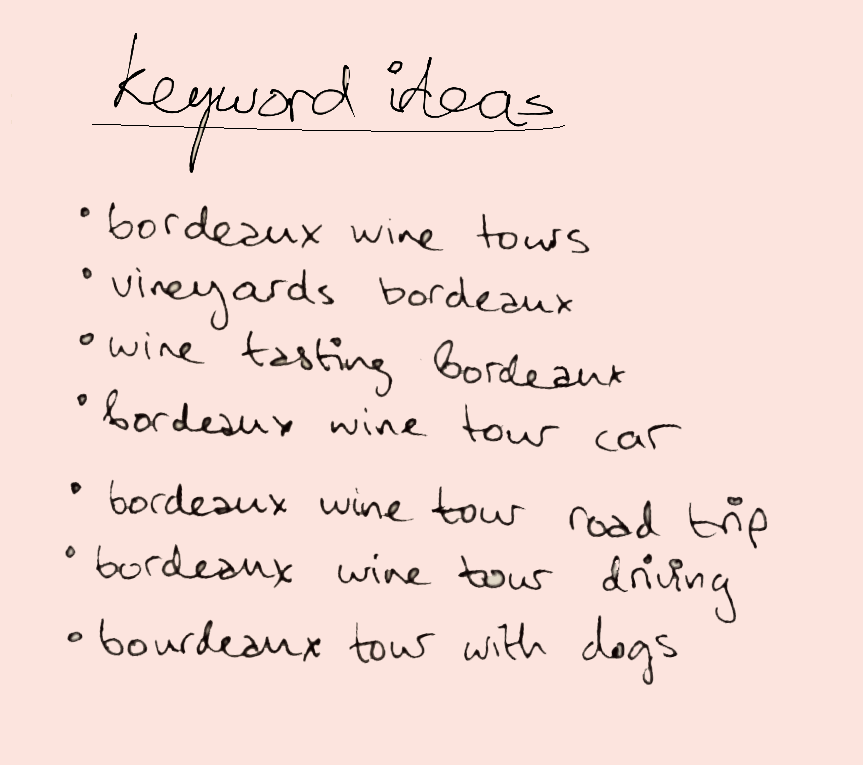 keyword ideas
• bordeaux wine tours
• vineyards bordeaux
• wine tasting bordeaux
• bordeaux wine tour car
• bordeaux wine tour road trip
• bordeaux wine tour driving
• bourdeaux tour with dogs